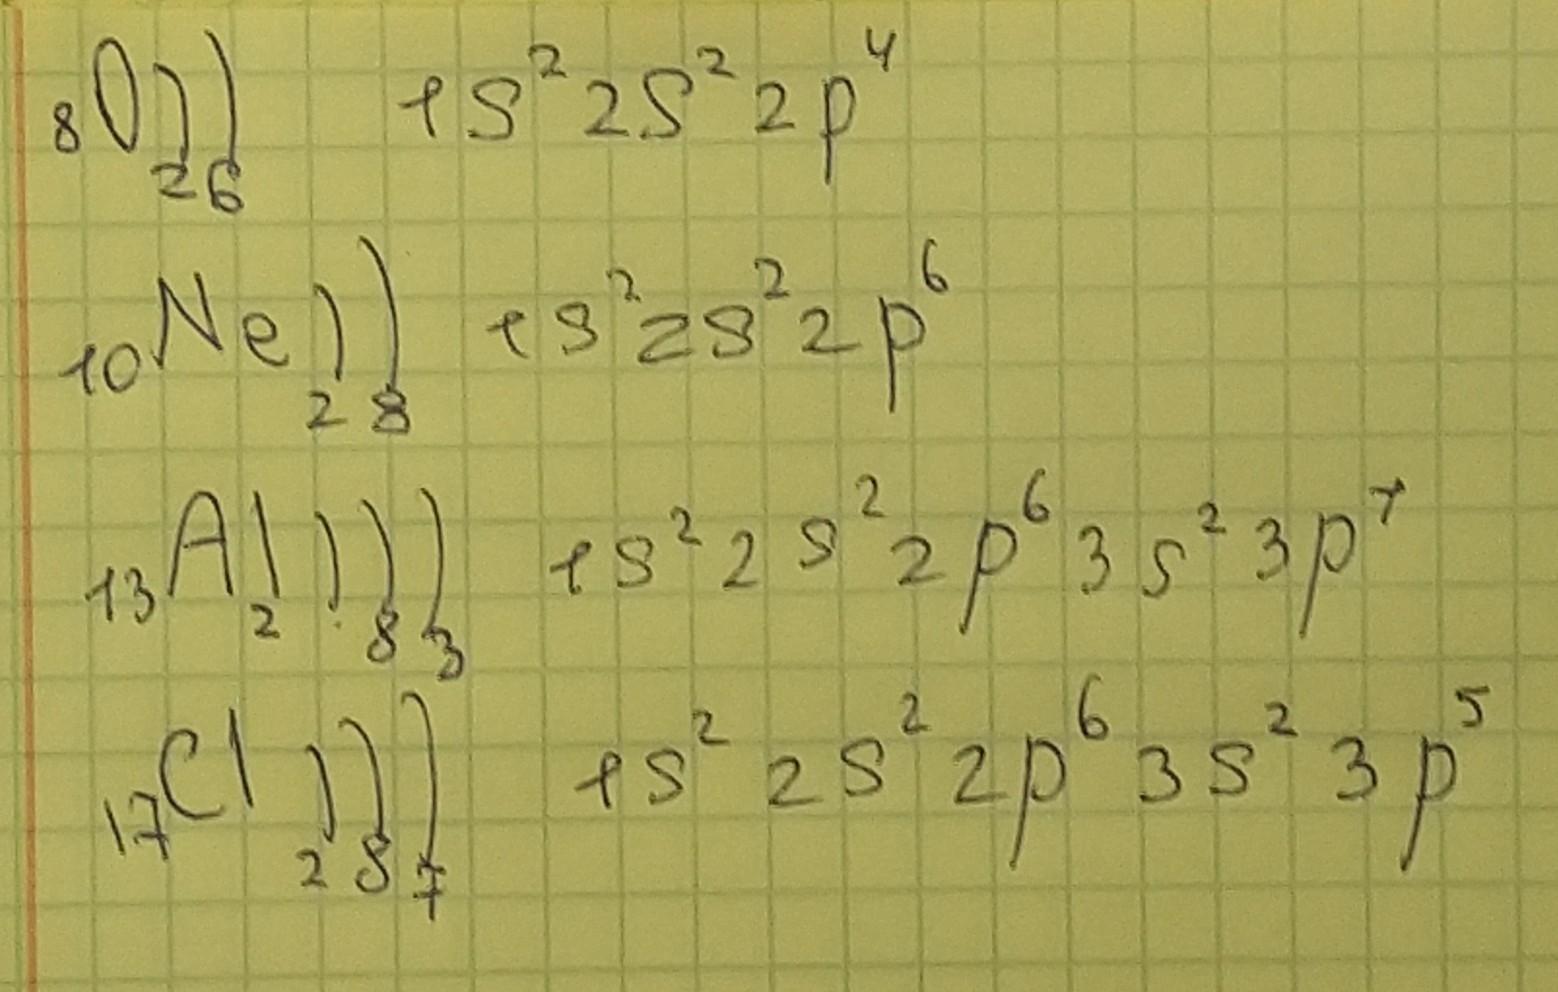 ₈O))₂ ₆ 1s² 2s² 2p⁴
₁₀Ne))₂ ₈ 1s² 2s² 2p⁶
₁₃Al)))₂ ₈ ₃ 1s² 2s² 2p⁶ 3s² 3p¹
₁₇Cl)))₂ ₈ ₇ 1s² 2s² 2p⁶ 3s² 3p⁵